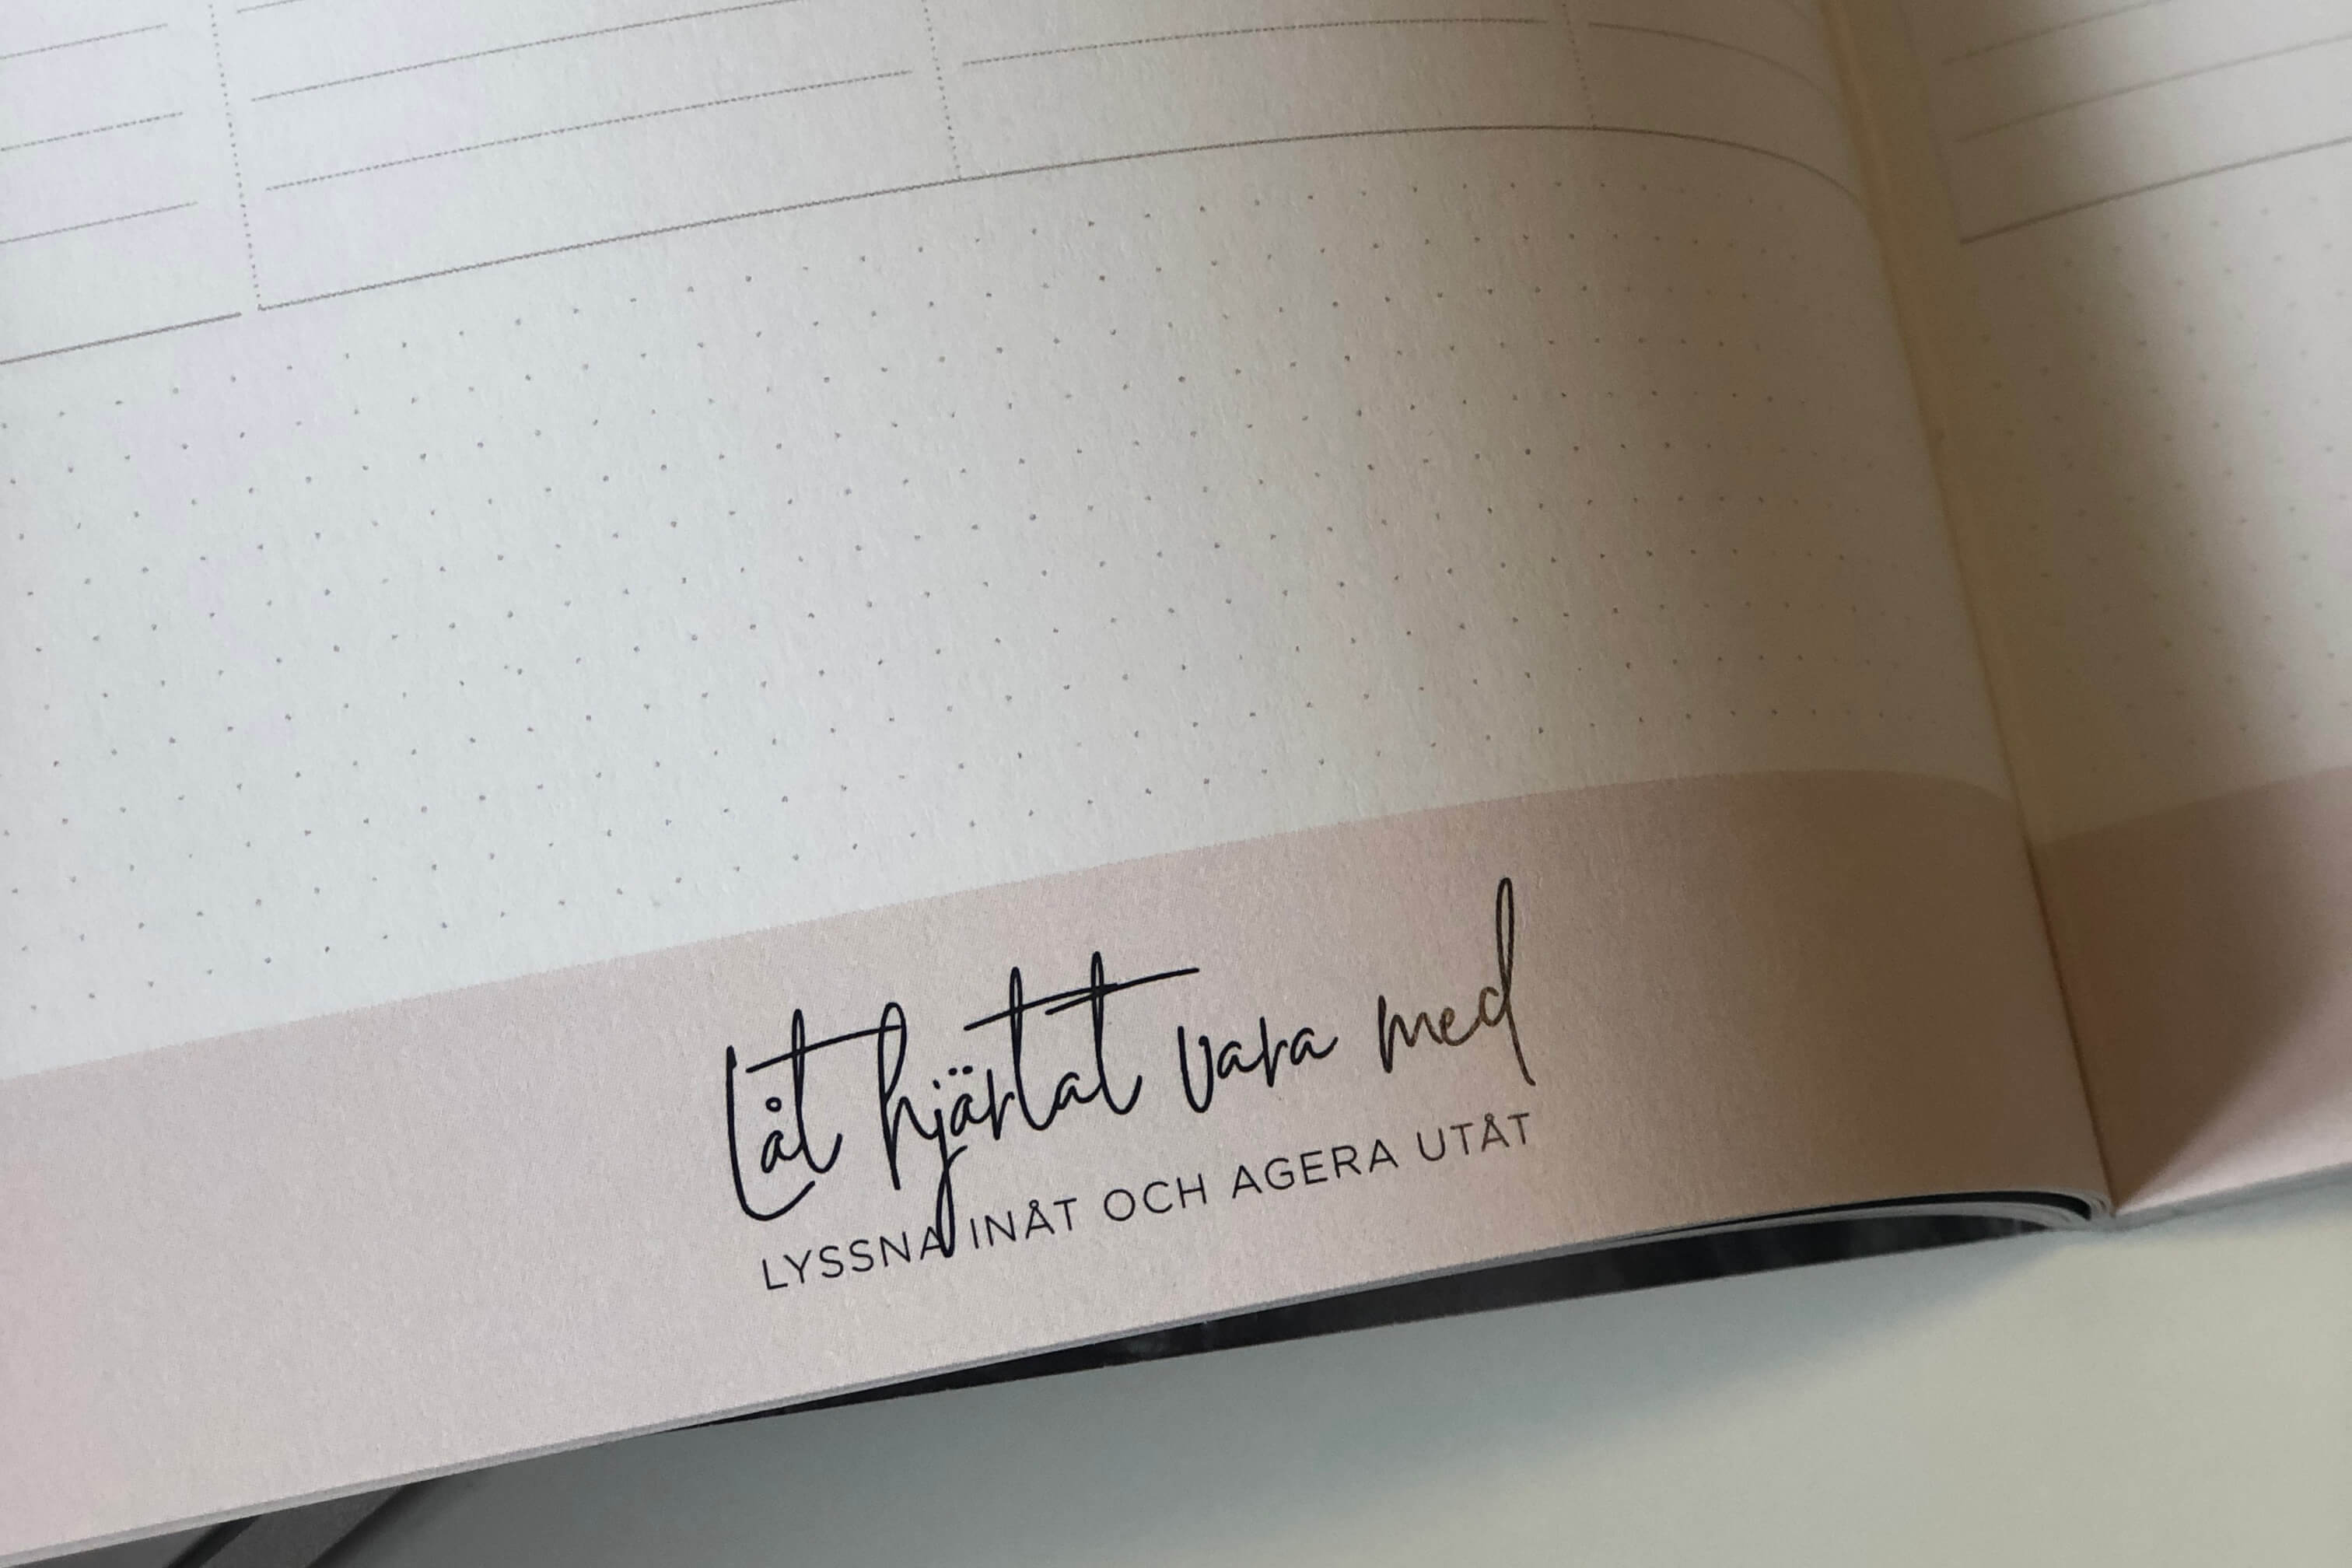 Låt hjärtat vara med
LYSSNA INÅT OCH AGERA UTÅT